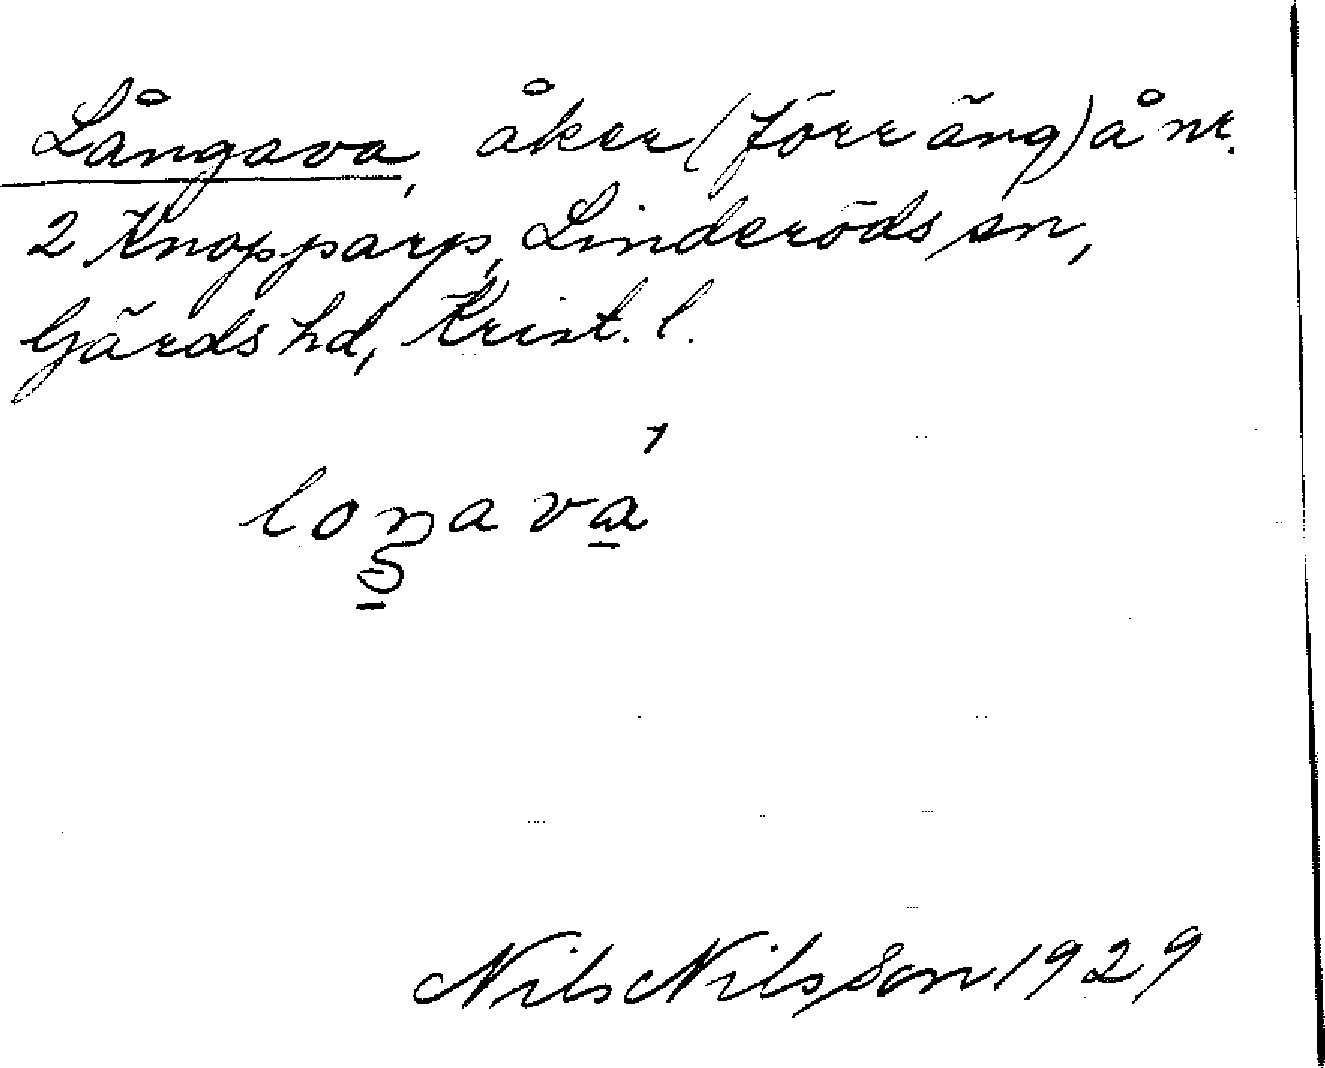 Långava, åker (förr äng) å nr.
2 Knopparp, Linderöds sn,
Gärds hd, Krist. l.
loŋavá
Nils Nilsson 1929